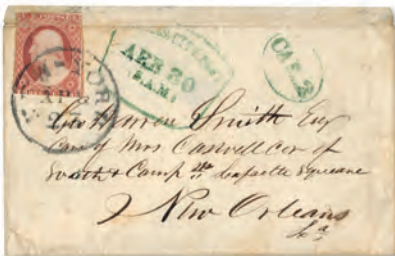 NEW-YORK
APR 30
8 A.M
CAR. 2
Smith Esq
Care of Mrs Caswell Cor of
South & Camp Sts Lafayette Square
New Orleans
La